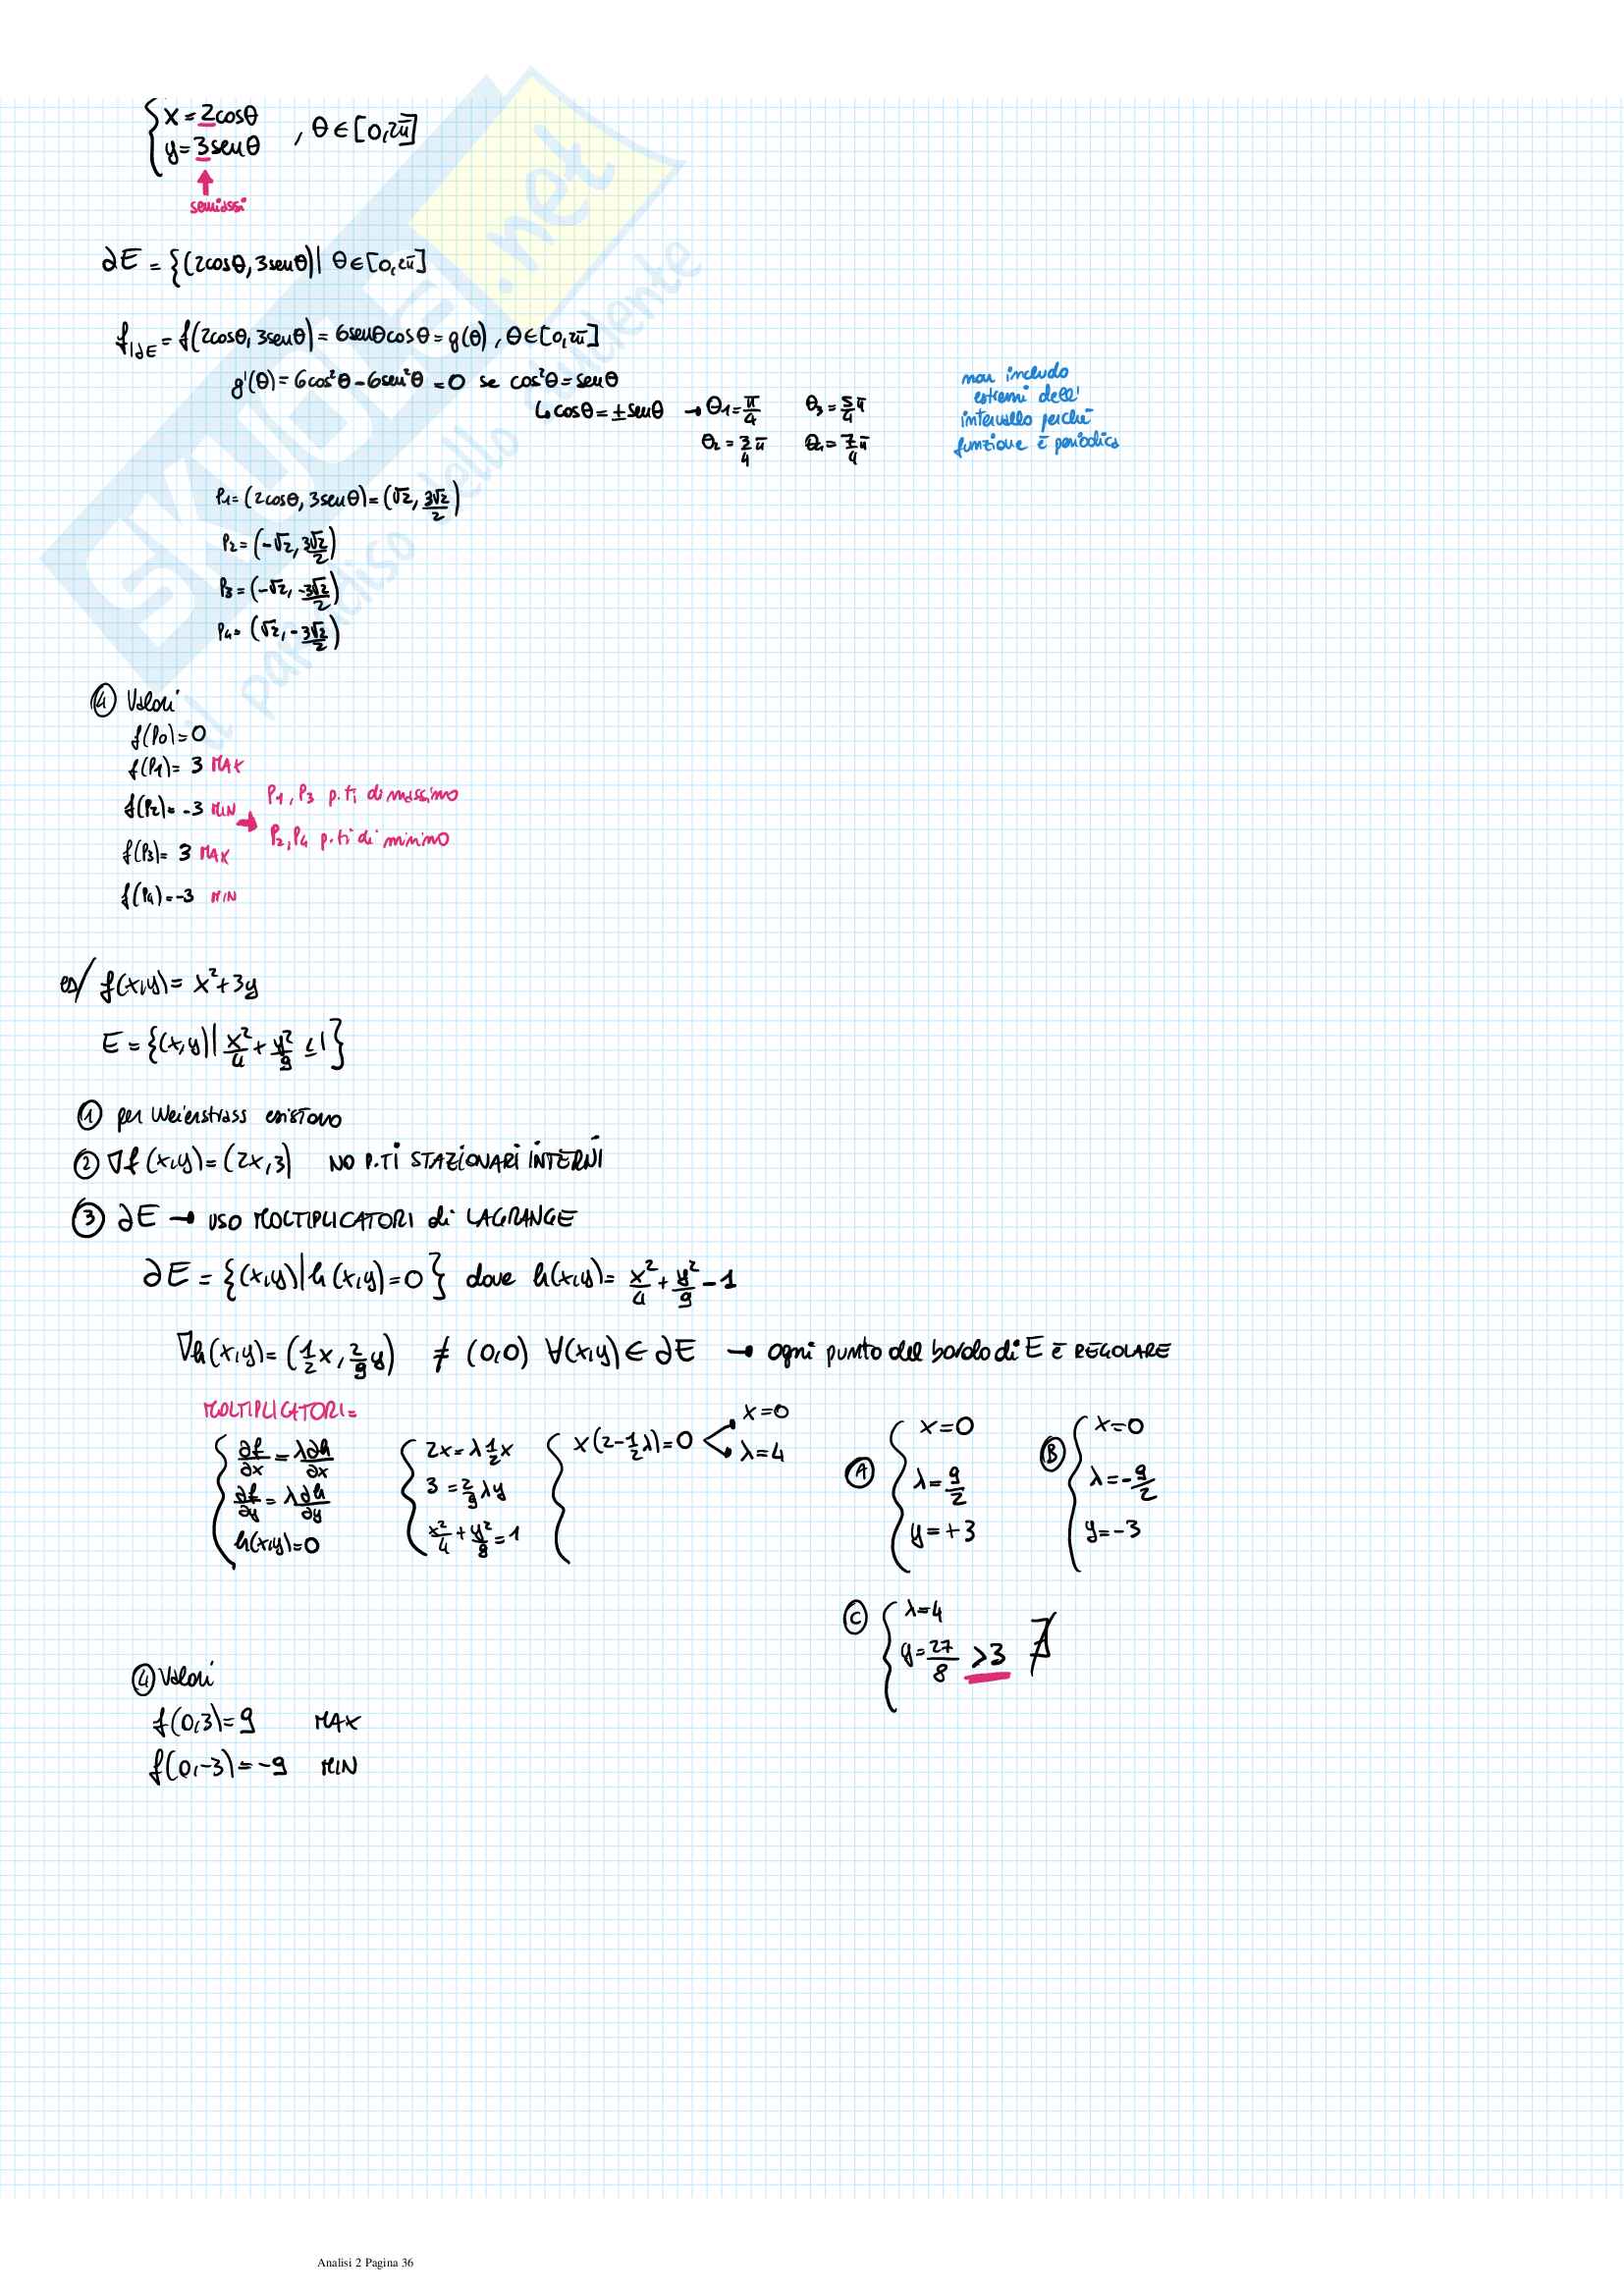 { x = 2cosθ
y = 3senθ , θ ∈ [0,2π]
semiassi
∂E = {(2cosθ, 3senθ)| θ ∈ [0,2π]
f|∂E = f(2cosθ, 3senθ) = 6senθcosθ = g(θ) , θ ∈ [0,2π]
g'(θ) = 6cos²θ - 6sen²θ = 0 se cos²θ = senθ
↳ cosθ = ± senθ → θ1 = π/4 θ3 = 5/4 π
θ2 = 3/4 π θ4 = 7/4 π
non includo
estremi dell'
intervallo perché
funzione è periodica
P1 = (2cosθ, 3senθ) = (√2, 3√2/2)
P2 = (-√2, 3√2/2)
P3 = (-√2, -3√2/2)
P4 = (√2, -3√2/2)
④ Valori
f(P0) = 0
f(P1) = 3 MAX
f(P2) = -3 MIN
f(P3) = 3 MAX
f(P4) = -3 MIN
P1, P3 p.ti di massimo
P2, P4 p.ti di minimo
es/ f(x,y) = x² + 3y
E = {(x,y)| x²/4 + y²/9 ≤ 1}
① per Weierstrass esistono
② ∇f(x,y) = (2x, 3) NO P.TI STAZIONARI INTERNI
③ ∂E → USO MOLTIPLICATORI di LAGRANGE
∂E = {(x,y)|h(x,y) = 0} dove h(x,y) = x²/4 + y²/9 - 1
∇h(x,y) = (1/2 x, 2/9 y) ≠ (0,0) ∀(x,y) ∈ ∂E → ogni punto del bordo di E è REGOLARE
MOLTIPLICATORI =
{ ∂f/∂x = λ ∂h/∂x
∂f/∂y = λ ∂h/∂y
h(x,y) = 0
{ 2x = λ 1/2 x
3 = 2/9 λy
x²/4 + y²/9 = 1
{ x(2 - 1/2 λ) = 0 < x = 0
λ = 4
Ⓐ { x = 0
λ = 9/2
y = +3
Ⓑ { x = 0
λ = -9/2
y = -3
Ⓒ { λ = 4
y = 27/8 > 3 ∄
④ Valori
f(0,3) = 9 MAX
f(0,-3) = -9 MIN
SKUOLA.net
il paradiso dello studente
Analisi 2 Pagina 36